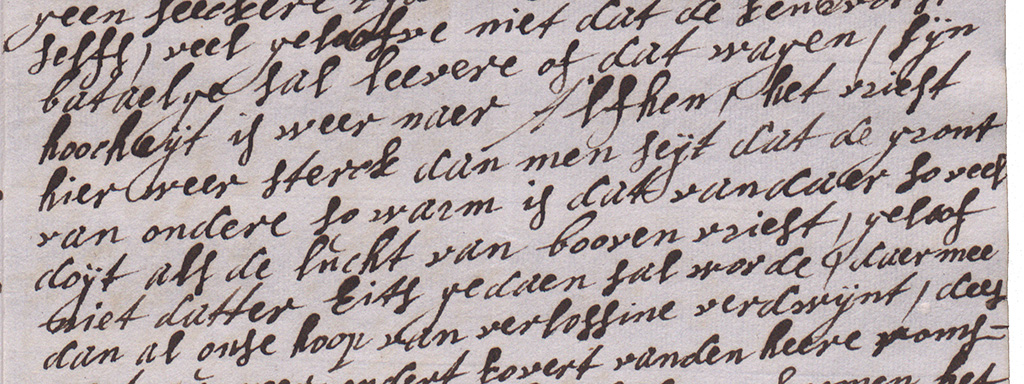 geen seeckere
selfs, veel geloofve niet dat de
bataelge sal leevere of dat wagen, sijn
hoocheyt is weer naer Alfhen, het vriest
hier weer sterck dan men seyt dat de gront
van ondere so warm is dat vandaer so veel
doyt als de lucht van booven vriest, geloof
niet datter iits gedaen sal worde, daermee
dan al onse hoop van verlossine verdwynt, dees
vanden heere roms-
het